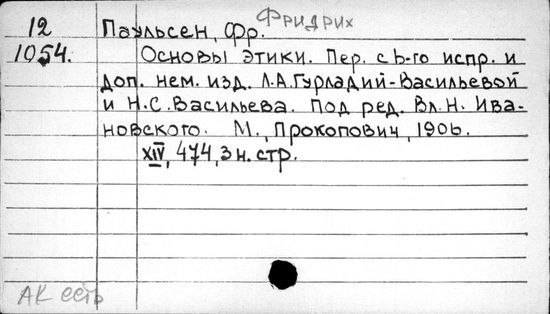 Фридрих
12 Паульсен, Фр.
1054. Основы этики. Пер. с 6-го испр. и
доп. нем. изд. Л.А.Гурладий-Васильевой
и Н.С.Васильева. Под ред. Вл.Н. Ива-
новского. М., Прокопович, 1906.
XIV, 474, 3 н. стр.
АК есть